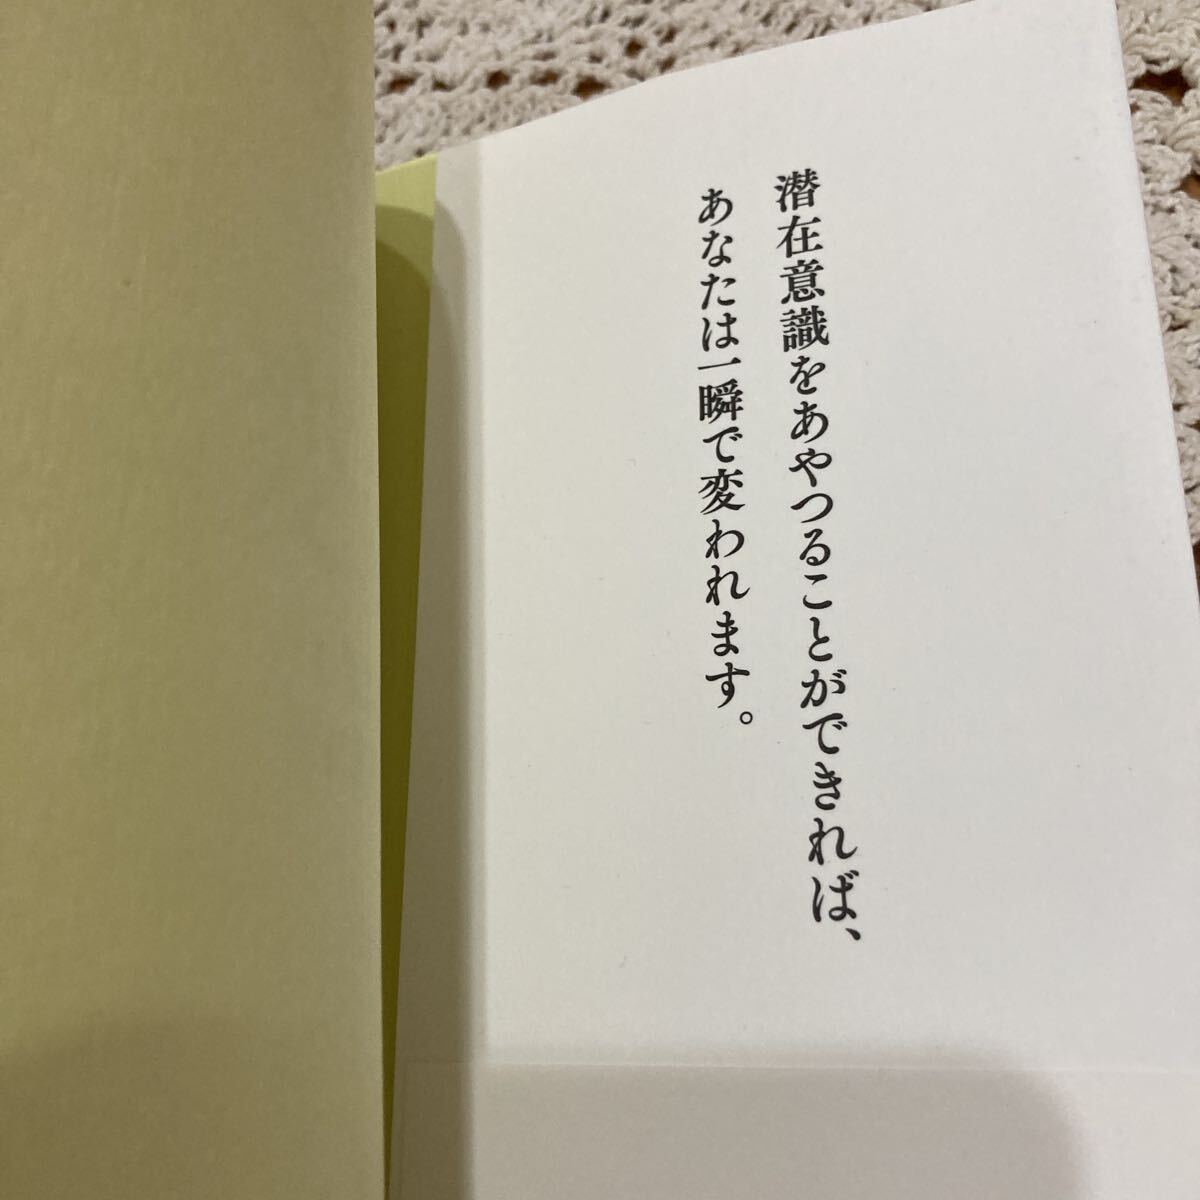 潜在意識をあやつることができれば、
あなたは一瞬で変われます。